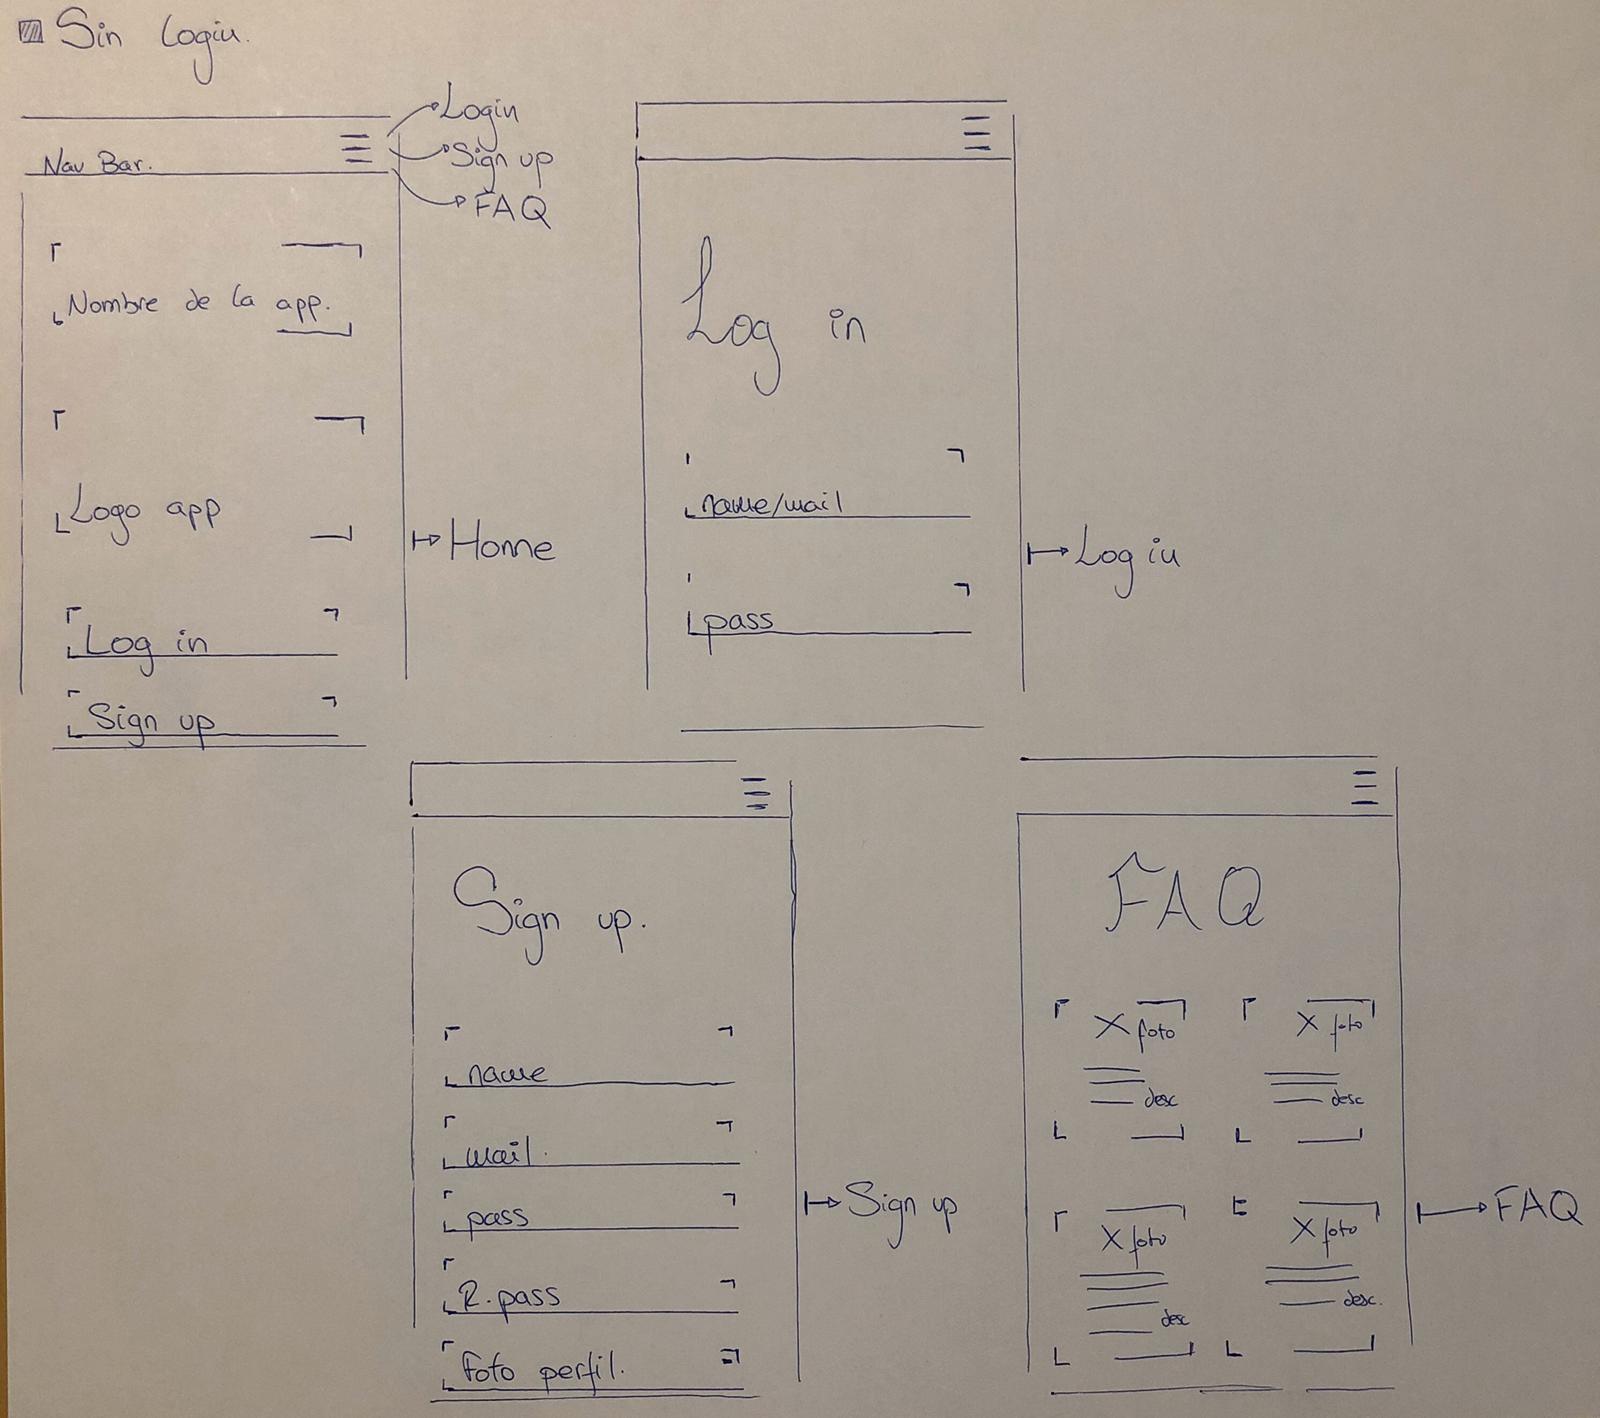 Sin Login.
Nav Bar.
Login
Sign up
FAQ
Nombre de la app.
Logo app
Log in
Sign up
Home
Log in
name/mail
pass
Log in
Sign up.
name
mail.
pass
R.pass
foto perfil.
Sign up
FAQ
X foto
X foto
desc
desc
X foto
X foto
desc
desc.
FAQ